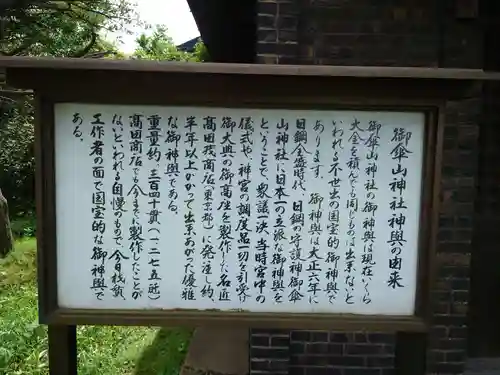 御傘山神社神輿の由来
御傘山神社の御神輿は現在いくら
大金を積んでも同じものは出来ないと
いわれる不世出の国宝的御神輿で
あります。 御神輿は大正六年に
日鋼全盛時代、日鋼の守護神御傘
山神社に日本一の立派な御神輿を
ということで、衆議一決 当時宮中の
儀式や、神宮の調度品一切を引受け
御大典の御高座を製作した名匠
高田茂商店(東京都)に発注し約
半年以上かかって出来あがった優雅
な御神輿である。
重量約 三百四十貫(一二七五瓩)
高田商店でも今までに製作したことが
ないといわれる自慢のもので、今日残領
工作者の面で国宝的な御神輿で
ある。